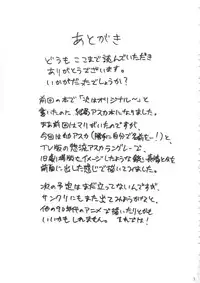 あとがき
どうもここまで読んでいただき
ありがとうございます。
いかがだったでしょうか?
前回の本で「次はオリジナル〜」と
書いたのに結局アスカ本になりました。
まぁ前回はマリだったのですが、
今回は旧アスカ(勝手に自分で名前を…!)と、
TV版の惣流アスカラングレーで、
旧劇場版もイメージしたような
前面に出した感じで描いてみました。
次の予定はまだ立ってないんですが、
サンクリにもまた出てみようかなと、
他の90年代のアニメで描いたりとかも
いいかもしれません。それでは!